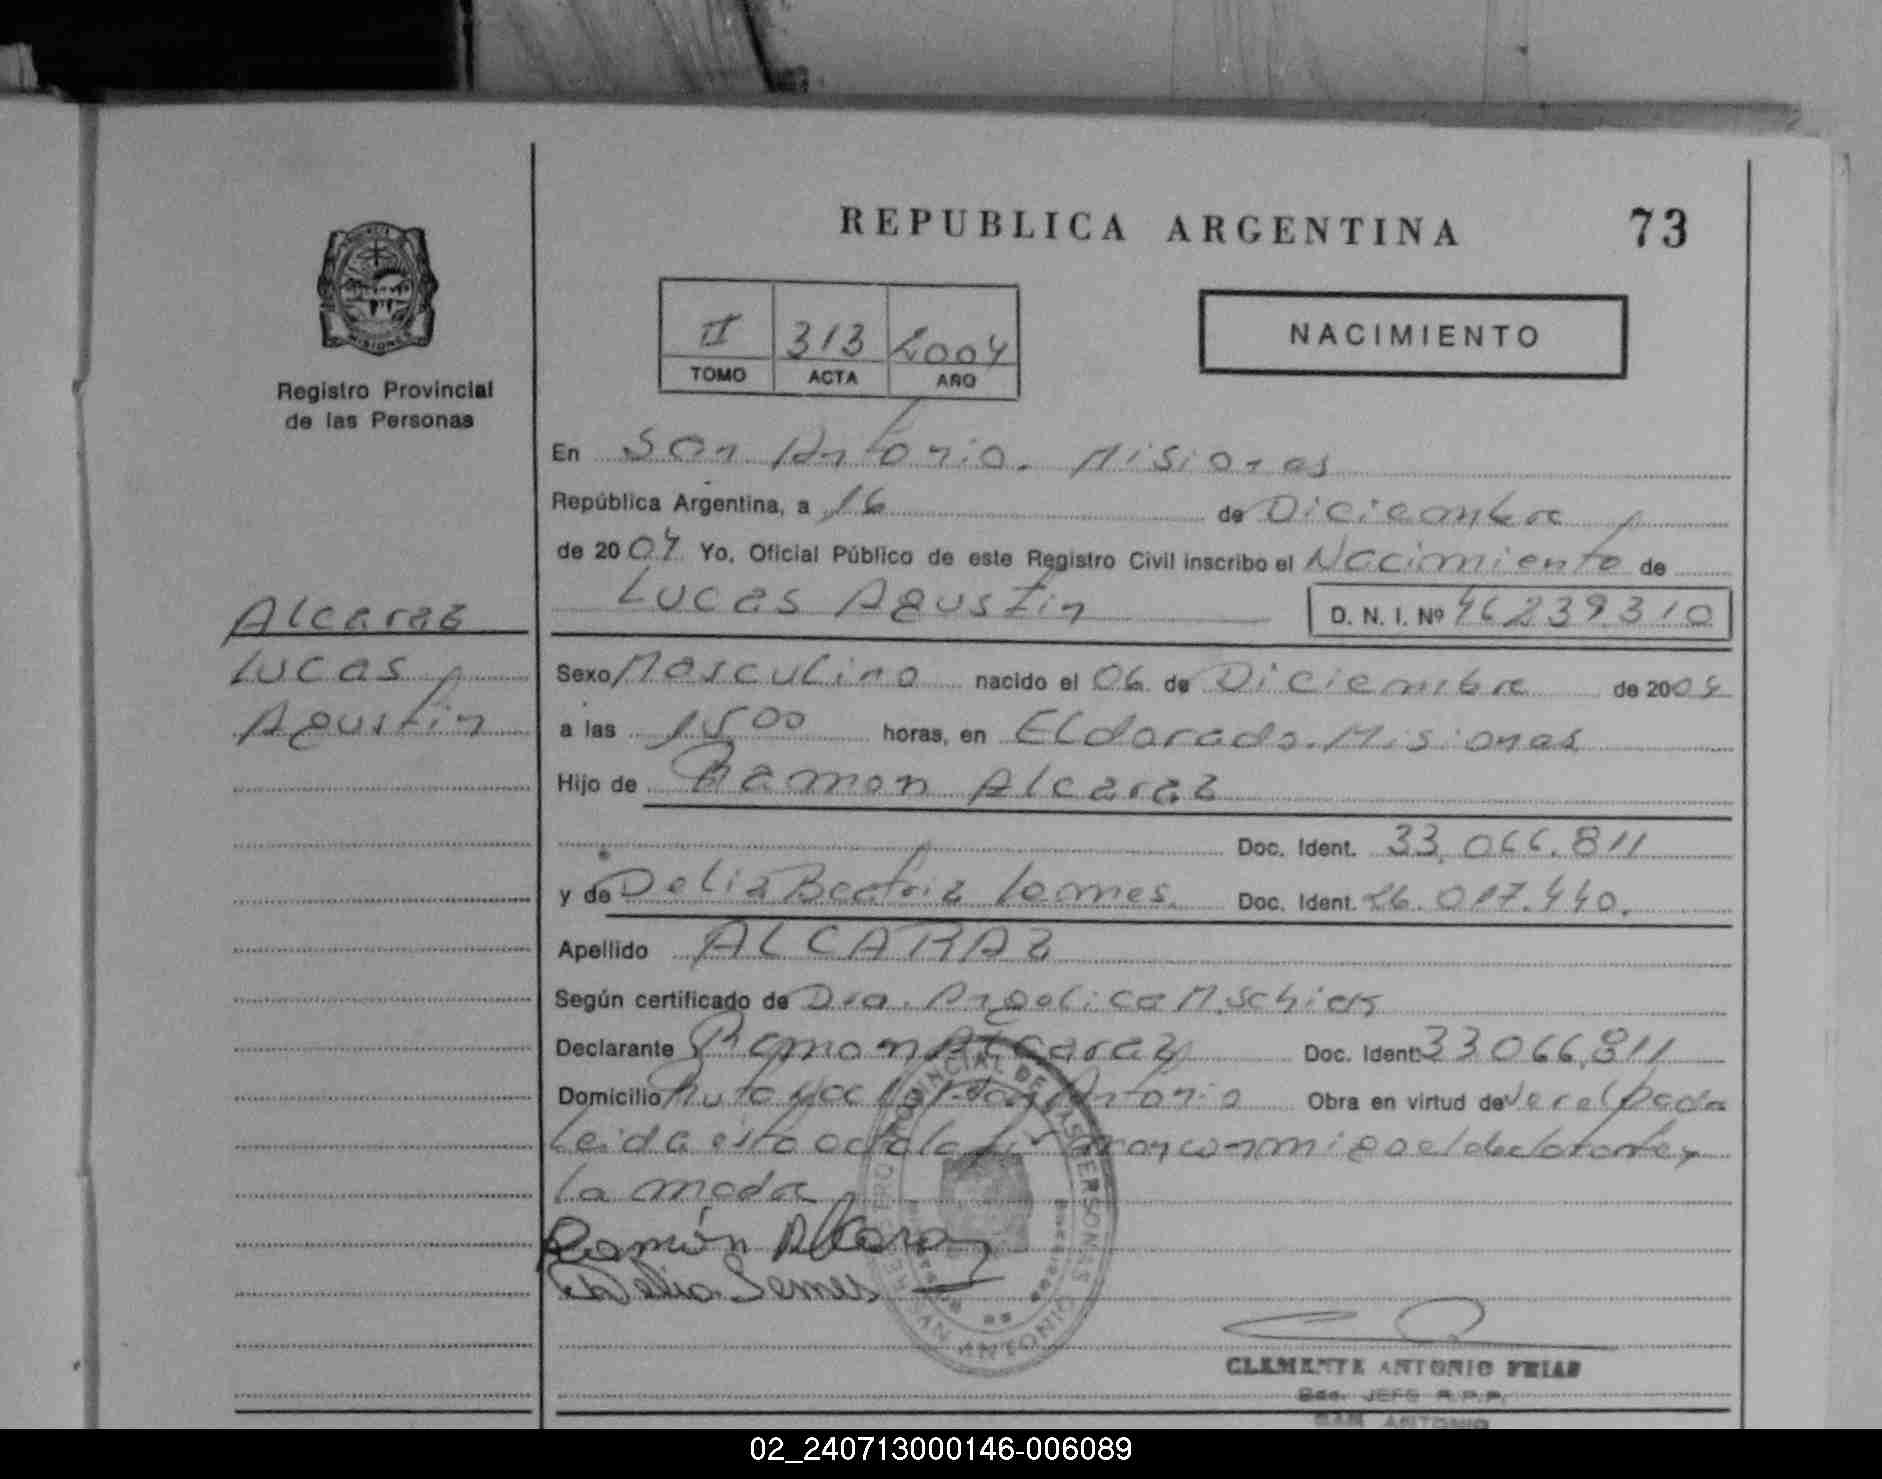 REPUBLICA ARGENTINA 73
II 313 2004
TOMO ACTA AÑO
NACIMIENTO
MISIONES
Registro Provincial
de las Personas
Alcaraz
Lucas
Agustin
En San Antonio. Misiones
República Argentina, a 16 de Diciembre
de 2004 Yo, Oficial Público de este Registro Civil inscribo el Nacimiento de
Lucas Agustin D. N. I. Nº 46239310
Sexo Masculino nacido el 06 de Diciembre de 2004
a las 1500 horas, en Eldorado. Misiones
Hijo de Ramon Alcaraz
Doc. Ident. 33.066.811
y de Delia Beatriz Lemes. Doc. Ident. 26.017.440.
Apellido ALCARAZ
Según certificado de Dra. Angelica M.
Declarante Ramon Alcaraz Doc. Ident. 33066.811
Domicilio Ruta San Antonio Obra en virtud de
Leida esta acta la firman conmigo el declarante y
la madre
Ramón Alcaraz
Delia Lemes
CLEMENTE ANTONIO FRIAS
JEFE R.P.P.
SAN ANTONIO
02_240713000146-006089